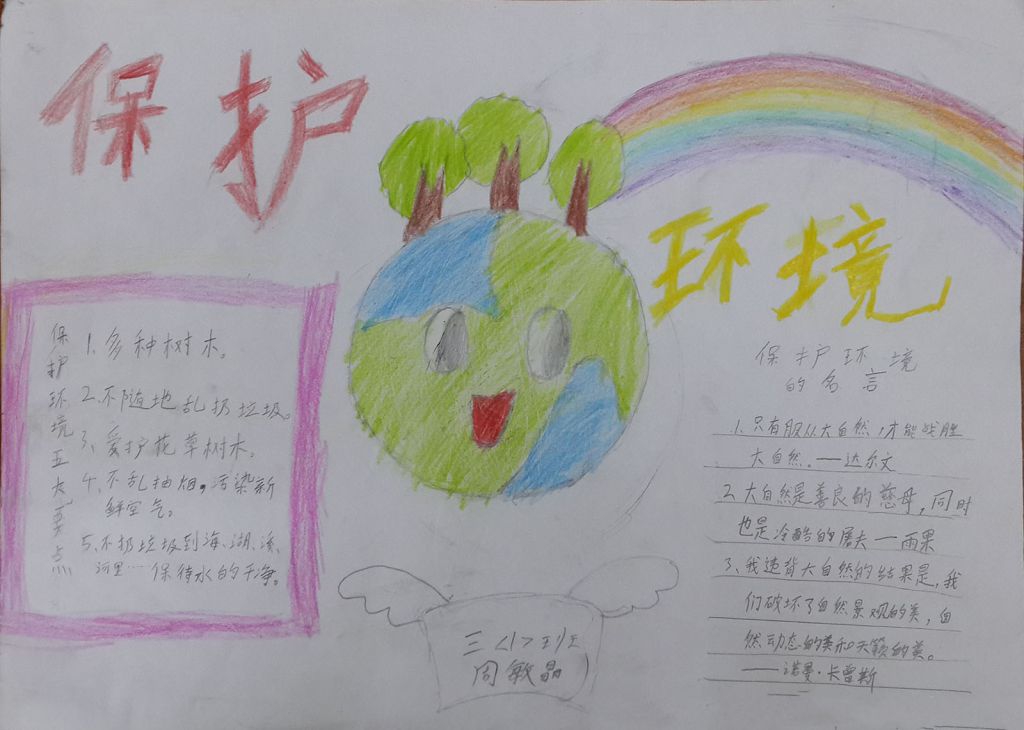 保护
环境
保护环境五大要点
1.多种树木。
2.不随地乱扔垃圾。
3、爱护花草树木。
4、不乱抽烟，污染新
鲜空气。
5、不扔垃圾到海、湖、溪、
河里……保待水的干净。
保护环境
的名言
1.只有服从大自然，才能战胜
大自然。——达尔文
2.大自然是善良的慈母，同时
也是冷酷的屠夫——雨果
3、我违背大自然的结果是，我
们破坏了自然景观的美，自
然动态的美和天籁的美。
——诺曼·卡曾斯
三<1>班
周敏晶